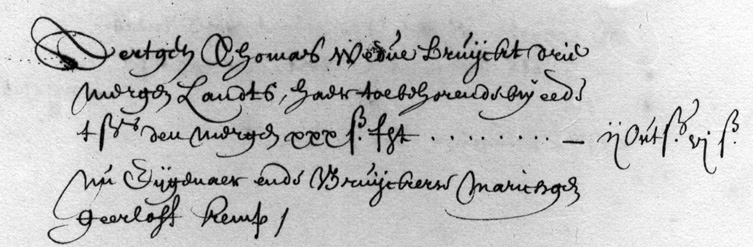 Dertgen Thomas wedue bruijckt drie
mergen Landts, haer toebehorende bij eede
t den mergen xxx ß. fyt ......... — ij ß. vj ß.
nu Eijgenaer ende Bruijckers Marichgen
geerloff kemp /